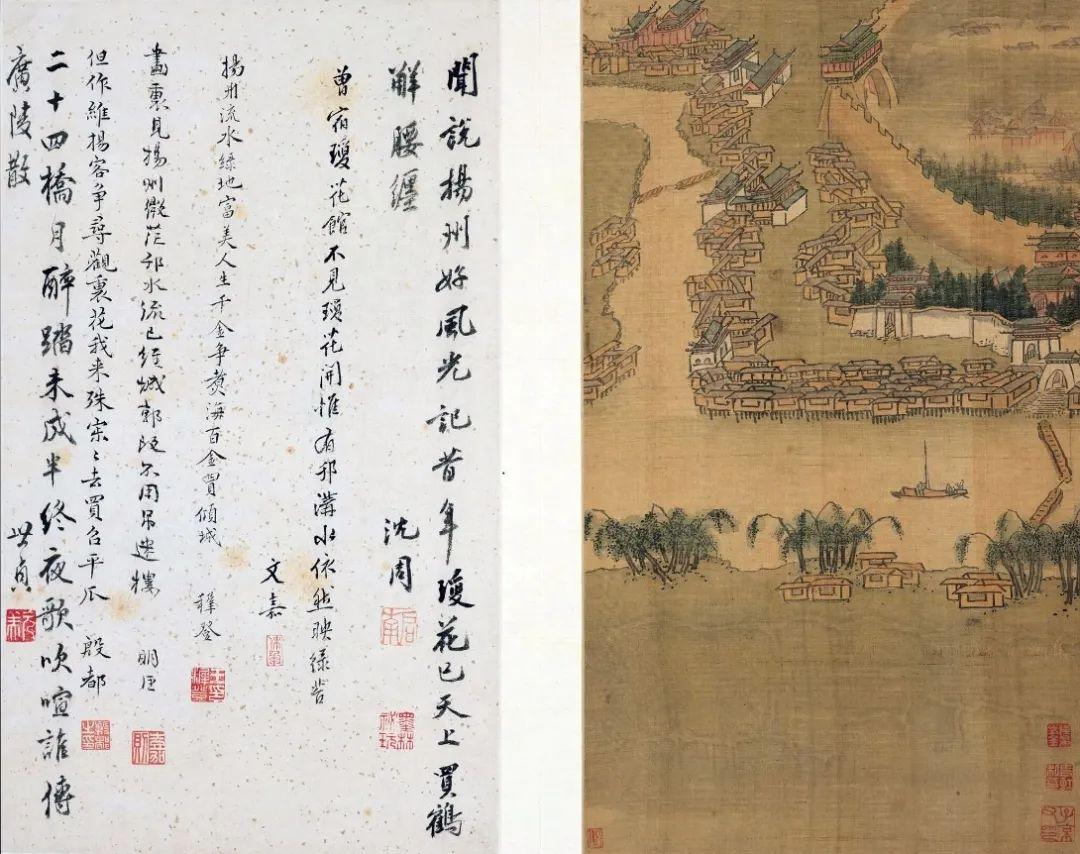 聞說揚州好風光記昔年瓊花已天上買鶴
解腰纏 沈周
啟南
墨林秘玩
曾宿瓊花館不見瓊花開惟有邗溝水依然映綠苔
文嘉
揚州流水綠地富美人生千金爭煑海百金買傾城
穉登
畫裏見揚州微茫邗水流已經城郭改不用吊迷樓 明臣
嘉則
但作維揚客爭尋觀裏花我來殊寂〻去買召平瓜 殷都
殷都之印
二十四橋月醉踏未成半終夜歌吹喧誰傳
廣陵散 世貞